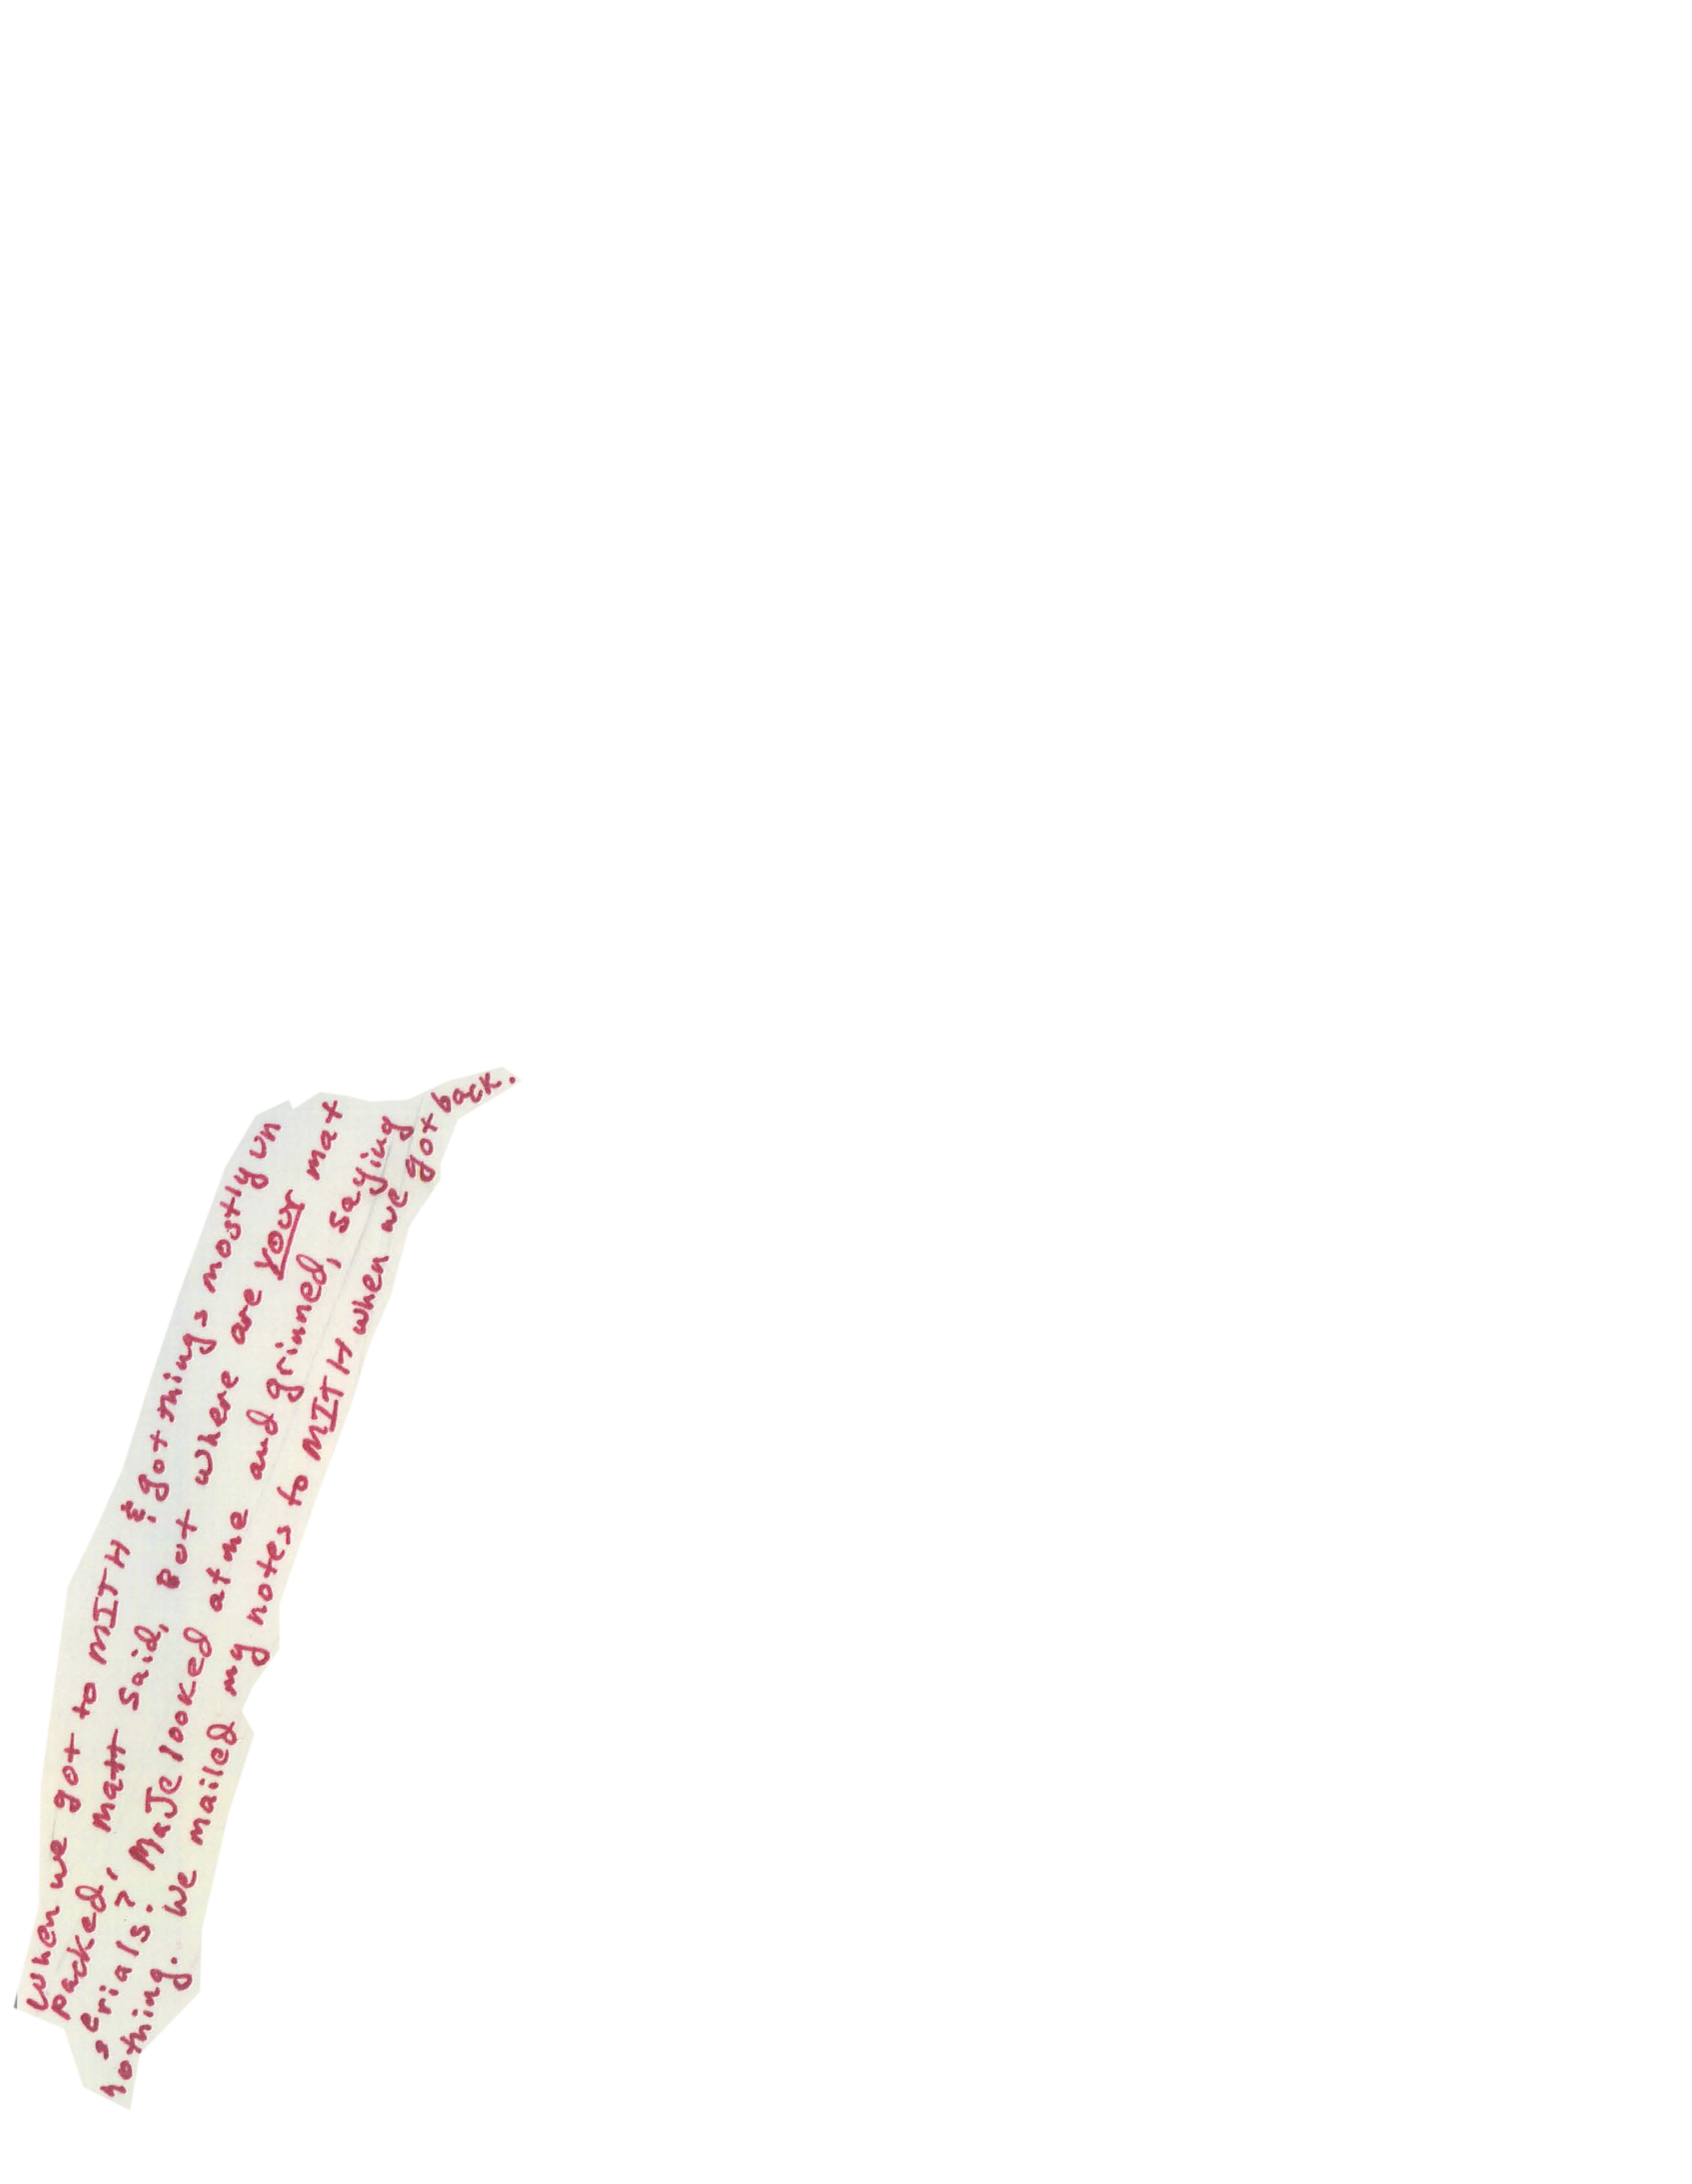 When we got to MITH & got things mostly un
packed, Matt said, But where are your mat
erials? MaJe looked at me and grinned, saying
nothing. We mailed my notes to MITH when we got back.